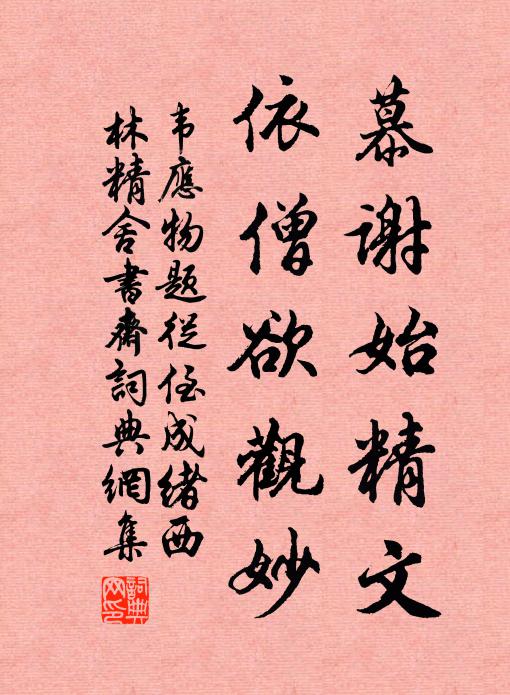 慕謝始精文
依僧欲觀妙
韦應物題從侄成緒西
林精舍書齋詞典網集
詞典网印